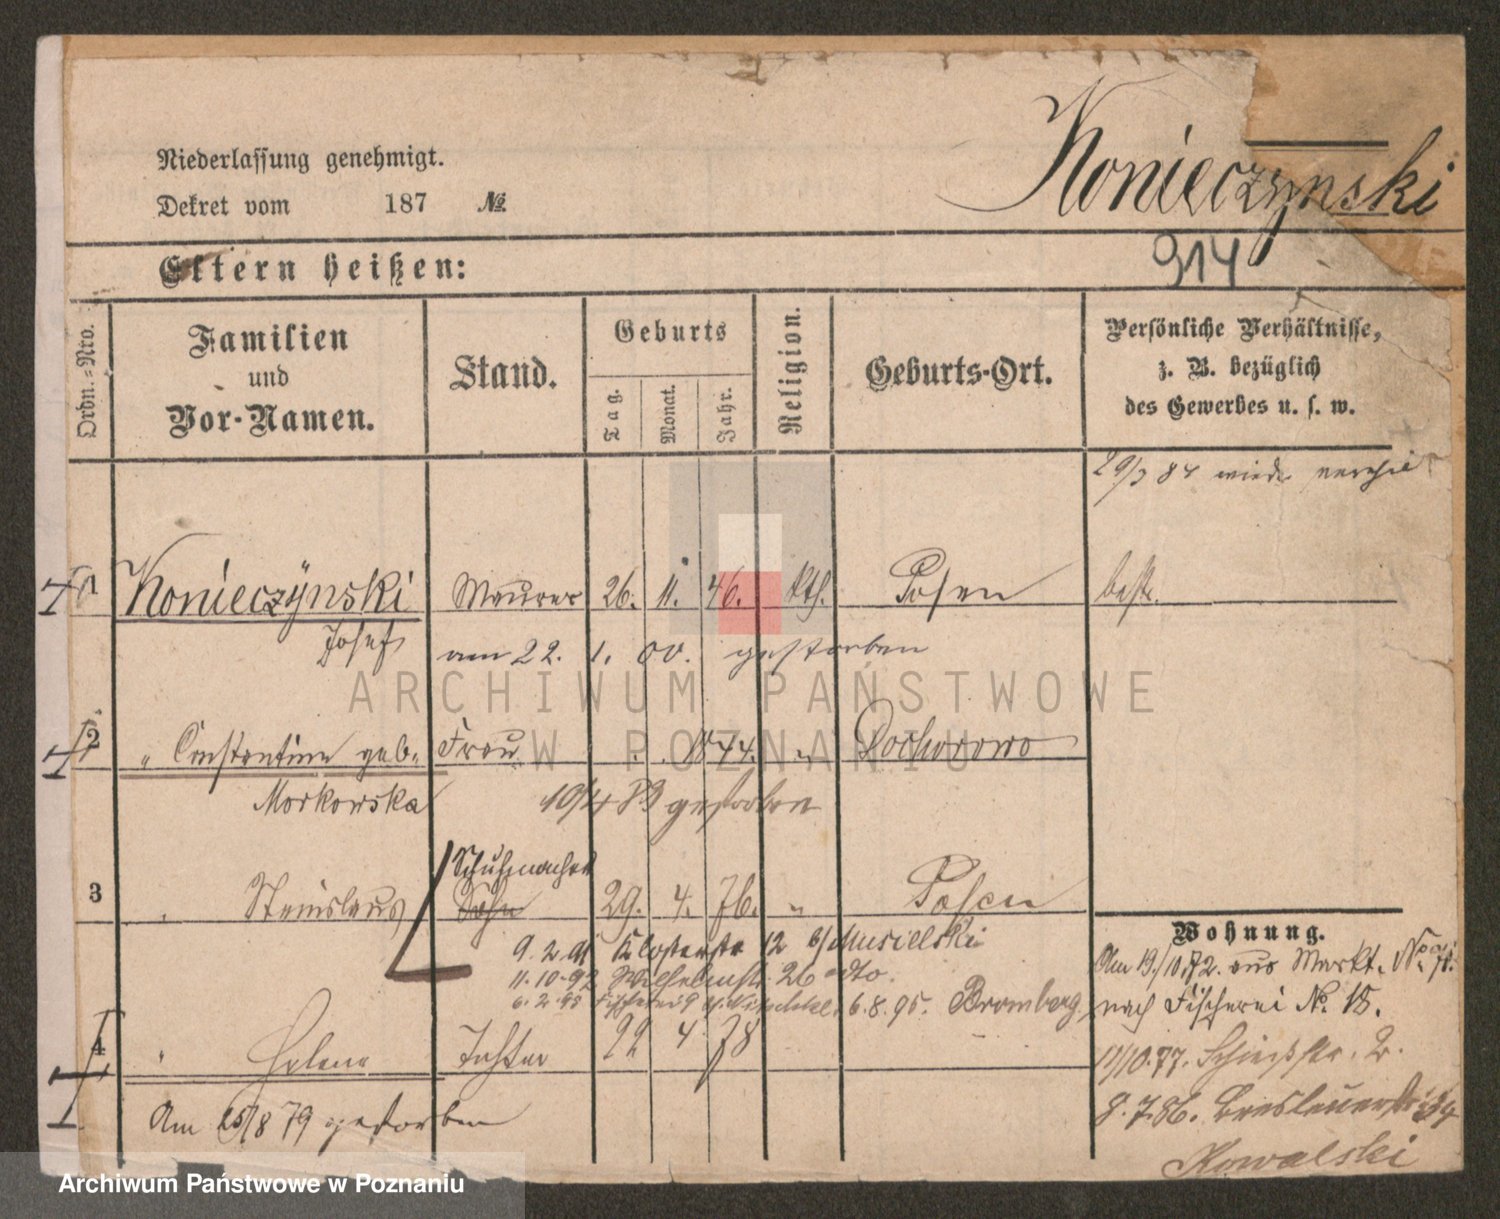 Konieczynski
Niederlassung genehmigt.
Dekret vom 187 №
914
Eltern heißen:
Ordn.-Nro.
Familien
und
Vor-Namen.
Stand.
Geburts
Tag.
Monat.
Jahr.
Religion.
Geburts-Ort.
Persönliche Verhältnisse,
z. B. bezüglich
des Gewerbes u. s. w.
29/3 84 wieder
1 Konieczynski Maurer 26. 11. 46. kth. Posen
Josef am 22. 1. 00. gestorben
ARCHIWUM PAŃSTWOWE
W POZNANIU
2 " Constantine geb. Frau 1844. "
Morkowska 10/4 83 gestorben
Schuhmacher
3 Stanislaus Sohn 29. 4. 76. " Posen
9. 2. 91 Klosterstr 12 b/Musielski
11. 10. 92 Wilhelmstr. 26 dto.
6. 2. 95 Fischerei 9 6. 8. 95. Bromberg
4 " Helene Tochter 22 4. 78
Am 25/8 79 gestorben
Wohnung.
Am 19./10.72. aus Markt. No 71.
nach Fischerei No. 18.
11/10.77. Schießstr. 2.
8. 7. 86. Breslauerstr 34
Kowalski
Archiwum Państwowe w Poznaniu